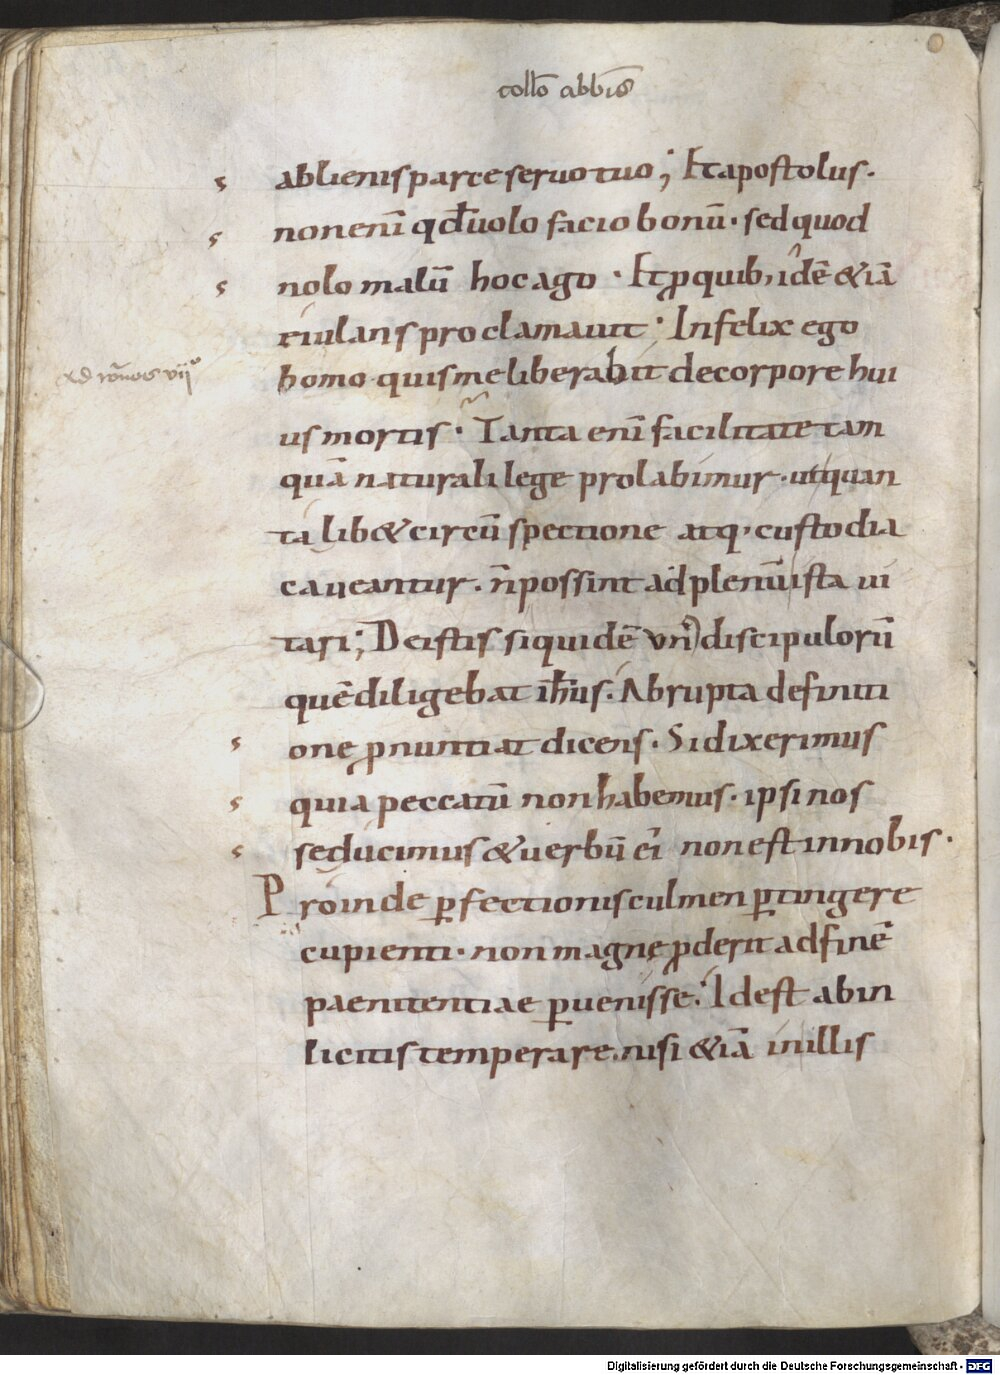 collo abbis
ab lienis parce seruo tuo; Et apostolus.
non enī qđ uolo facio bonū. sed quod
nolo malū hoc ago. Et ꝓ quib; idē &iā
eiulans proclamauit. Infelix ego
ad romos vii°
homo quis me liberabit de corpore hui
us mortis. Tanta enī facilitate tam
quā naturali lege prolabimur. ut quan
talib& circūspectione atq; custodia
caueantur. n̄ possint ad plenū ista ui
tari; De istis siquidē vn̄ discipulorū
quē diligebat ih̄us. Abrupta definiti
onę ꝓnuntiat dicens. Si dixerimus
quia peccatū non habemus. ipsi nos
seducimus & uerbū ei non est in nobis.
Proinde ꝑfectionis culmen ꝑtingere
cupienti. non magnę ꝓderit ad finē
paenitentiae ꝑuenisse. Id est ab in
licitis temperare. nisi &iā in illis
Digitalisierung gefördert durch die Deutsche Forschungsgemeinschaft - DFG